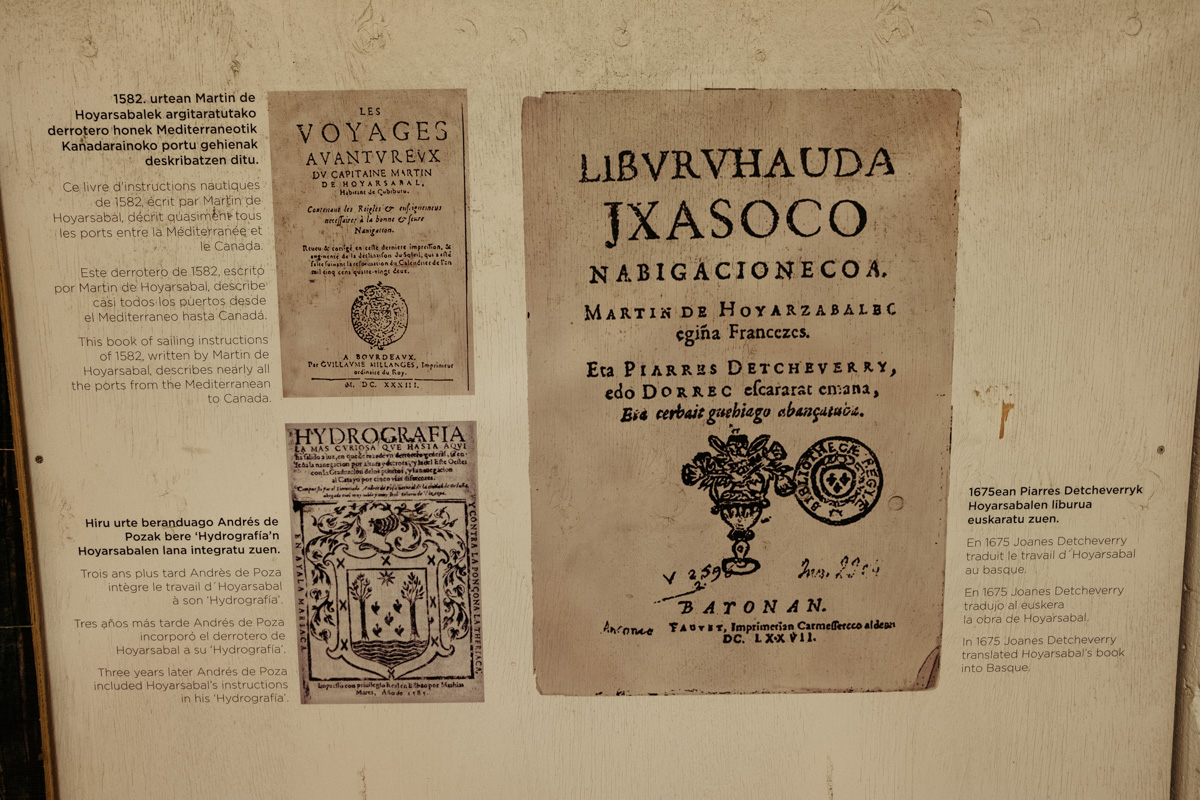 1582. urtean Martin de
Hoyarsabalek argitaratutako
derrotero honek Mediterraneotik
Kanadarainoko portu gehienak
deskribatzen ditu.
Ce livre d'instructions nautiques
de 1582, écrit par Martin de
Hoyarsabal, décrit quasiment tous
les ports entre la Méditerranée et
le Canada.
Este derrotero de 1582, escrito
por Martin de Hoyarsabal, describe
casi todos los puertos desde
el Mediterraneo hasta Canadá.
This book of sailing instructions
of 1582, written by Martin de
Hoyarsabal, describes nearly all
the ports from the Mediterranean
to Canada.
LES
VOYAGES
AVANTVREVX
DV CAPITAINE MARTIN
DE HOYARSABAL,
Habitant de Çubiburu.
Contenant des Reigles & enseignemens
necessaires à la bonne & seure
Nauigation.
Reueu & corrigé en ceste derniere impression, &
augmenté de la declinaison du Soleil, qui a esté
faite suiuant la reformation du Calendrier de l'an
mil cinq cens quatre-vingts deux.
A BOVRDEAVX.
Par GVILLAVME MILLANGES, Imprimeur
ordinaire du Roy.
M. DC. XXXIII.
Hiru urte beranduago Andrés de
Pozak bere 'Hydrografía'n
Hoyarsabalen lana integratu zuen.
Trois ans plus tard Andrès de Poza
intègre le travail d´Hoyarsabal
à son 'Hydrografía'.
Tres años más tarde Andrés de Poza
incorporó el derrotero de
Hoyarsabal a su 'Hydrografía'.
Three years later Andrés de Poza
included Hoyarsabal's instructions
in his 'Hydrografía'.
HYDROGRAFIA
LA MAS CVRIOSA QVE HASTA AQVI
LIBVRVHAUDA
JXASOCO
NABIGACIONECOA.
MARTIN DE HOYARZABALEC
egiña Francezes.
Eta PIARRES DETCHEVERRY,
edo DORREC escararat emana,
Eta cerbait guehiago abançatuba.
BIBLIOTHECÆ REGIÆ
BAYONAN.
FAUVET, Imprimerian Carmessetteco aldean
DC. LXXVII.
1675ean Piarres Detcheverryk
Hoyarsabalen liburua
euskaratu zuen.
En 1675 Joanes Detcheverry
traduit le travail d´Hoyarsabal
au basque.
En 1675 Joanes Detcheverry
tradujo al euskera
la obra de Hoyarsabal.
In 1675 Joanes Detcheverry
translated Hoyarsabal's book
into Basque.